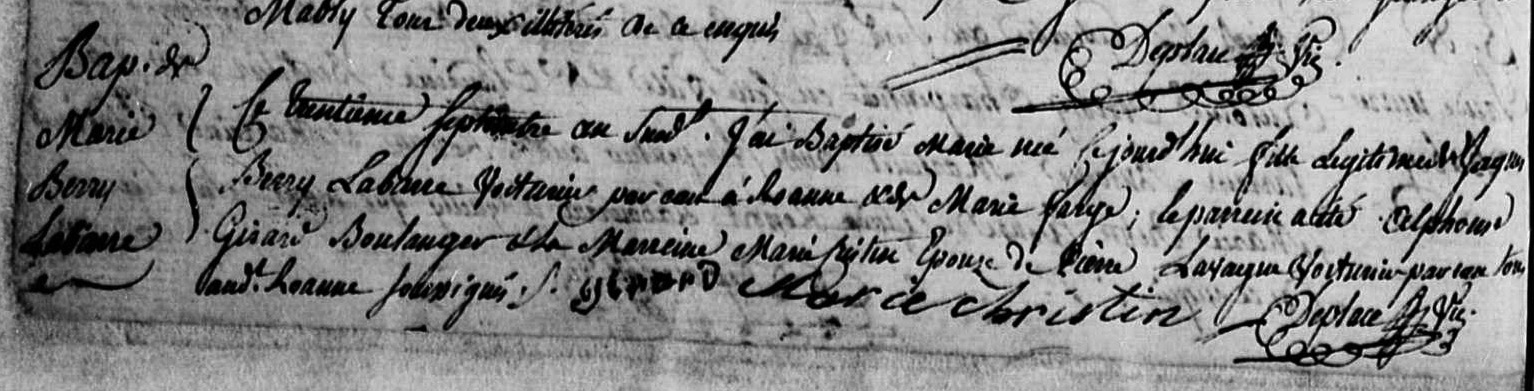 Mably tous deux illiterés de ce enquis
Deplace Vic.
Bap. de
Marie
Berry
Labarre
Le trentieme septembre an susdt. J'ai Baptisé Marie née ce jourd'hui fille Legitime de Jaques
Berry Labarre Voiturier par eau à Roanne & de Marie farge; le parrein a été Alphonse
Girard Boulanger & la Marreine Marie Cristin Epouze de Pierre Lavaque Voiturier par eau tous
audt. Roanne soussignés ./.
girard
Marie christin
Deplace Vic.